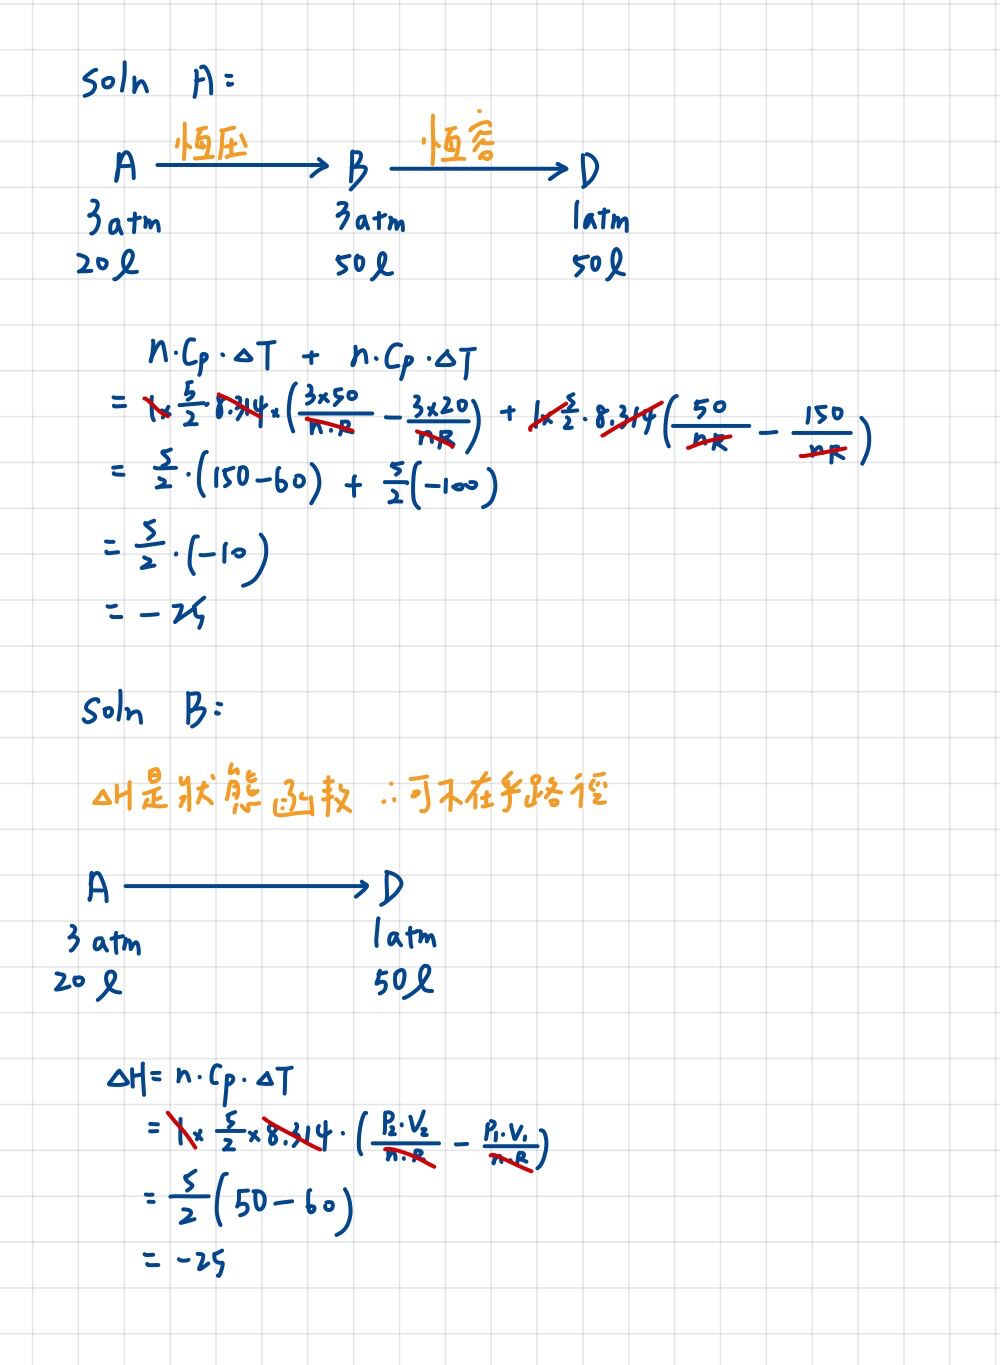 soln A:
A 恒压 → B 恒容 → D
3atm 3atm 1atm
20ℓ 50ℓ 50ℓ
n·Cp·ΔT + n·Cp·ΔT
= 1× 5/2 · 8.314 × (3×50/n·R − 3×20/nR) + 1× 5/2 · 8.314 (50/nR − 150/nR)
= 5/2 · (150−60) + 5/2 (−100)
= 5/2 · (−10)
= −25
soln B:
ΔH是狀態函数 ∴可不在乎路徑
A → D
3 atm 1 atm
20 ℓ 50ℓ
ΔH = n·Cp·ΔT
= 1× 5/2 × 8.314 · (P₂·V₂/n·R − P₁·V₁/n·R)
= 5/2 (50−60)
= −25